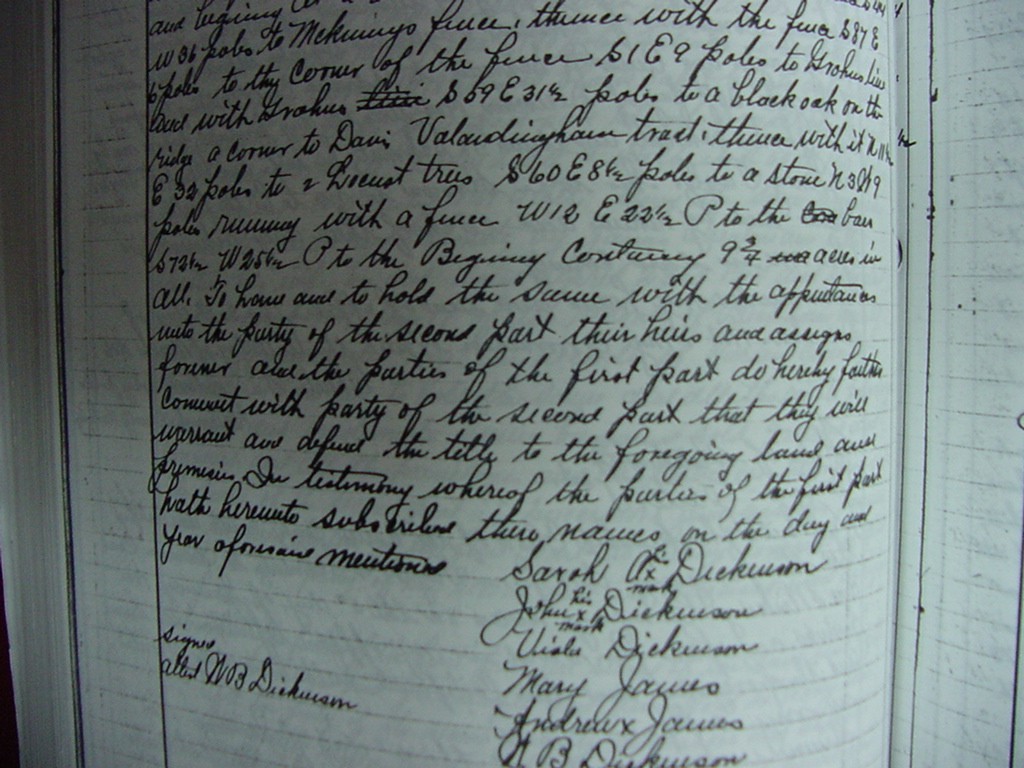 and begining at a
W 36 poles to McKinneys fence, thence with the fence S 87 E
6 poles to thy corner of the fence S 1 E 9 poles to Grahus line
and with Grahus S 59 E 31½ poles to a black oak on the
ridge a corner to Davis Valandingham tract, thence with it N 11½
E 32 poles to 2 Locust trees S 60 E 8½ poles to a stone N 3 W 9
poles running with a fence W 12 E 22½ P to the bars
S 72½ W 25½ P to the Begining Containing 9 3/4 acres in
all. To have and to hold the same with the appurtances
unto the party of the second part their heirs and assigns
forever and the parties of the first part do hereby further
Covenent with party of the second part that they will
warrant and defend the title to the foregoing land and
premisies. In testimony whereof the parties of the first part
hath hereunto subscribed there names on the day and
year aforesaid mentioned
Sarah x Dickinson
mark
John his x Dickinson
mark
Viola Dickinson
Mary James
Andrew x James
N B Dickinson
signed
attest N B Dickinson